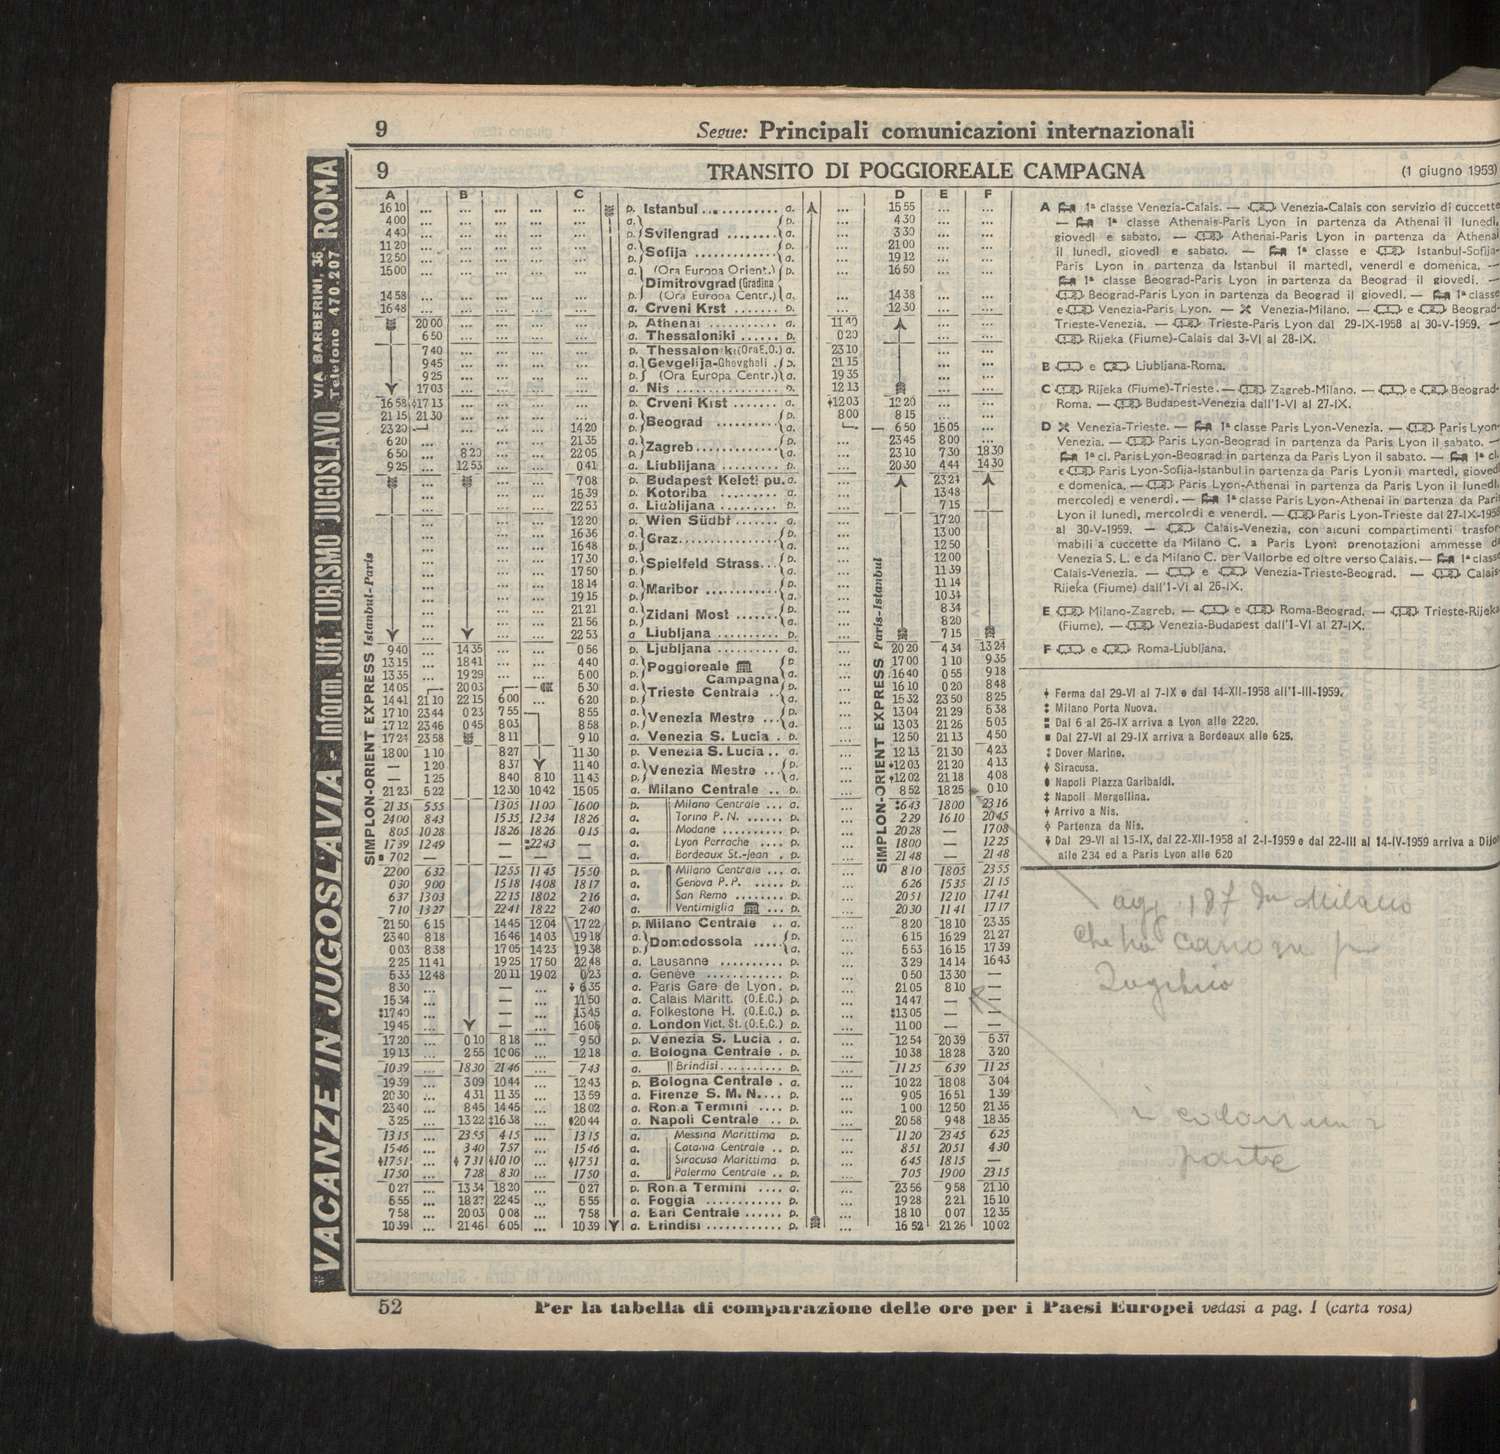 9 Segue: Principali comunicazioni internazionali
9 TRANSITO DI POGGIOREALE CAMPAGNA (1 giugno 1958)
VACANZE IN JUGOSLAVIA - Inform. Uff. TURISMO JUGOSLAVO VIA BARBERINI, 36 Telefono 470.207 ROMA
A B C D E F
16 10 ... ... ... ... ... p. Istanbul .......... a. ... 15 55 ... ...
4 00 ... ... ... ... ... a. Svilengrad ........ p. ... 4 30 ... ...
4 40 ... ... ... ... ... p. a. ... 3 30 ... ...
11 20 ... ... ... ... ... a. Sofija ............. p. ... 21 00 ... ...
12 50 ... ... ... ... ... p. a. ... 19 12 ... ...
15 00 ... ... ... ... ... a. (Ora Europa Orient.) p. ... 16 50 ... ...
Dimitrovgrad (Gradina
14 58 ... ... ... ... ... p. (Ora Europa Centr.) a. ... 14 38 ... ...
16 48 ... ... ... ... ... a. Crveni Krst ....... p. ... 12 30 ... ...
20 00 ... ... ... ... p. Athenai ........... a. 11 40 ... ...
6 50 ... ... ... ... a. Thessaloniki ...... p. 0 20 ... ...
7 40 ... ... ... ... p. Thessaloniki (Ora E.O.) a. 23 10 ... ...
9 45 ... ... ... ... a. Gevgelija-Ghevgheli p. 21 15 ... ...
9 25 ... ... ... ... p. (Ora Europa Centr.) a. 19 35 ... ...
17 03 ... ... ... ... a. Nis ................ p. 12 13 ... ...
16 58 17 13 ... ... ... ... p. Crveni Krst ....... a. 12 03 12 20 ... ...
21 15 21 30 ... ... ... ... a. Beograd .......... p. 8 00 8 15 ... ...
23 20 ... ... ... 14 20 p. a. 6 50 15 05 ...
6 20 ... ... ... ... 21 35 a. Zagreb ............ p. ... 23 45 8 00 ...
6 50 ... 8 20 ... ... 22 05 p. a. ... 23 10 7 30 18 30
9 25 ... 12 53 ... ... 0 41 a. Liubljana ......... p. ... 20 30 4 44 14 30
... ... ... 7 08 p. Budapest Keleti pu. a. ... 23 24
... ... ... 15 39 p. Kotoriba ......... a. ... 13 48
... ... ... 22 53 a. Liublijana ........ p. ... 7 15
... ... ... 12 20 p. Wien Südbf ....... a. ... 17 20
... ... ... 16 36 a. Graz............... p. ... 13 00
... ... ... 16 48 p. a. ... 12 50
... ... ... 17 30 a. Spielfeld Strass... p. ... 12 00
... ... ... 17 50 p. a. ... 11 39
... ... ... 18 14 a. Maribor ........... p. ... 11 14
... ... ... 19 15 p. a. ... 10 34
... ... ... 21 21 a. Zidani Most ....... p. ... 8 34
... ... ... 21 56 p. a. ... 8 20
... ... ... 22 53 a Liubljana ......... p. ... 7 15
SIMPLON-ORIENT EXPRESS Istanbul-Paris
SIMPLON-ORIENT EXPRESS Paris-Istanbul
9 40 ... 14 35 ... ... 0 56 p. Ljubljana ......... a. ... 20 20 4 34 13 24
13 15 ... 18 41 ... ... 4 40 a. Poggioreale p. ... 17 00 1 10 9 35
13 35 ... 19 29 ... ... 6 00 p. Campagna a. ... 16 40 0 55 9 18
14 05 20 03 5 30 a. Trieste Centrale .. p. ... 16 10 0 20 8 48
14 41 21 10 22 15 6 00 ... 6 20 p. a. ... 15 32 23 50 8 25
17 10 23 44 0 23 7 55 8 55 a. Venezia Mestre ... p. ... 13 04 21 29 5 38
17 12 23 46 0 45 8 03 8 58 p. a. ... 13 03 21 26 5 03
17 24 23 58 8 11 9 10 a. Venezia S. Lucia . p. ... 12 50 21 13 4 50
18 00 1 10 8 27 11 30 p. Venezia S. Lucia .. a. ... 12 13 21 30 4 23
— 1 20 8 37 11 40 a. Venezia Mestre ... p. ... 12 03 21 20 4 13
— 1 25 8 40 8 10 11 43 p. a. ... 12 02 21 18 4 08
21 23 5 22 12 30 10 42 15 05 a. Milano Centrale .. p. ... 8 52 18 25 0 10
21 35 5 55 13 05 11 00 16 00 p. Milano Centrale ... a. ... 6 43 18 00 23 16
24 00 8 43 15 35 12 34 18 26 a. Torino P. N. ...... p. ... 2 29 16 10 20 45
8 05 10 28 18 26 18 26 0 15 a. Modane .......... p. ... 20 28 — 17 08
17 39 12 49 — 22 43 ... a. Lyon Perrache .... p. ... 18 00 — 12 25
7 02 — — — ... a. Bordeaux St.-jean . p. ... 21 48 — 21 48
22 00 6 32 12 55 11 45 15 50 p. Milano Centrale ... a. ... 8 10 18 05 23 55
0 30 9 00 15 18 14 08 18 17 a. Genova P. P. ...... p. ... 6 26 15 35 21 15
6 37 13 03 22 15 18 02 2 16 a. San Remo ........ p. ... 20 51 12 10 17 41
7 10 13 27 22 41 18 22 2 40 a. Ventimiglia ... p. ... 20 30 11 41 17 17
21 50 6 15 14 45 12 04 17 22 p. Milano Centrale .. a. ... 8 20 18 10 23 35
23 40 8 18 16 46 14 03 19 18 a. Domodossola ..... p. ... 6 15 16 29 21 27
0 03 8 38 17 05 14 23 19 38 p. a. ... 5 53 16 15 17 39
2 25 11 41 19 25 17 50 22 48 a. Lausanne ......... p. ... 3 29 14 14 16 43
5 33 12 48 20 11 19 02 0 23 a. Genève ............ p. ... 0 50 13 30 —
8 30 ... — ... 6 35 a. Paris Gare de Lyon. p. ... 21 05 8 10 —
15 34 ... — ... 11 50 a. Calais Maritt. (O.E.C.) p. ... 14 47 — —
17 40 ... — ... 13 45 a. Folkestone H. (O.E.C.) p. ... 13 05 — —
19 45 ... — ... 16 05 a. London Vict. St. (O.E.C.) p. ... 11 00 — —
17 20 ... 0 10 8 18 ... 9 50 p. Venezia S. Lucia . a. ... 12 54 20 39 5 37
19 13 ... 2 55 10 06 ... 12 18 a. Bologna Centrale . p. ... 10 38 18 28 3 20
10 39 ... 18 30 21 46 ... 7 43 a. Brindisi.......... p. ... 11 25 6 39 11 25
19 39 ... 3 09 10 44 ... 12 43 p. Bologna Centrale . a. ... 10 22 18 08 3 04
20 30 ... 4 31 11 35 ... 13 59 a. Firenze S. M. N.... p. ... 9 05 16 51 1 39
23 40 ... 8 45 14 45 ... 18 02 a. Roma Termini .... p. ... 1 00 12 50 21 35
3 25 ... 13 22 16 38 ... 20 44 a. Napoli Centrale .. p. ... 20 58 9 48 18 35
13 15 ... 23 55 4 15 ... 13 15 a. Messina Marittima p. ... 11 20 23 45 6 25
15 46 ... 3 40 7 57 ... 15 46 a. Catania Centrale .. p. ... 8 51 20 51 4 30
17 51 ... 7 31 10 10 ... 17 51 a. Siracusa Marittima p. ... 6 45 18 15 —
17 50 ... 7 28 8 30 ... 17 50 a. Palermo Centrale .. p. ... 7 05 19 00 23 15
0 27 ... 13 34 18 20 ... 0 27 p. Roma Termini .... a. ... 23 56 9 58 21 10
6 55 ... 18 27 22 45 ... 6 55 a. Foggia ............ p. ... 19 28 2 21 15 10
7 58 ... 20 03 0 08 ... 7 58 a. Bari Centrale ...... p. ... 18 10 0 07 12 35
10 39 ... 21 46 6 05 ... 10 39 a. Brindisi ............ p. ... 16 52 21 26 10 02
A 1ª classe Venezia-Calais. — Venezia-Calais con servizio di cuccette
— 1ª classe Athenais-Paris Lyon in partenza da Athenai il lunedì,
giovedì e sabato. — Athenai-Paris Lyon in partenza da Athenai
il lunedì, giovedì e sabato. — 1ª classe e Istanbul-Sofija-
Paris Lyon in partenza da Istanbul il martedì, venerdì e domenica. —
1ª classe Beograd-Paris Lyon in partenza da Beograd il giovedì. —
Beograd-Paris Lyon in partenza da Beograd il giovedì. — 1ª classe
e Venezia-Paris Lyon. — Venezia-Milano. — e Beograd-
Trieste-Venezia. — Trieste-Paris Lyon dal 29-IX-1958 al 30-V-1959. —
Rijeka (Fiume)-Calais dal 3-VI al 28-IX.
B e Liubljana-Roma.
C Rijeka (Fiume)-Trieste. — Zagreb-Milano. — e Beograd-
Roma. — Budapest-Venezia dall'1-VI al 27-IX.
D Venezia-Trieste. — 1ª classe Paris Lyon-Venezia. — Paris Lyon-
Venezia. — Paris Lyon-Beograd in partenza da Paris Lyon il sabato. —
1ª cl. Paris Lyon-Beograd in partenza da Paris Lyon il sabato. — 1ª cl.
e Paris Lyon-Sofija-Istanbul in partenza da Paris Lyon il martedì, giovedì
e domenica. — Paris Lyon-Athenai in partenza da Paris Lyon il lunedì,
mercoledì e venerdì. — 1ª classe Paris Lyon-Athenai in partenza da Paris
Lyon il lunedì, mercoledì e venerdì. — Paris Lyon-Trieste dal 27-IX-1958
al 30-V-1959. — Calais-Venezia, con alcuni compartimenti trasfor
mabili a cuccette da Milano C. a Paris Lyon: prenotazioni ammesse da
Venezia S. L. e da Milano C. per Vallorbe ed oltre verso Calais. — 1ª classe
Calais-Venezia. — e Venezia-Trieste-Beograd. — Calais
Rijeka (Fiume) dall'1-VI al 26-IX.
E Milano-Zagreb. — e Roma-Beograd. — Trieste-Rijeka
(Fiume). — Venezia-Budapest dall'1-VI al 27-IX.
F e Roma-Ljubljana.
Ferma dal 29-VI al 7-IX e dal 14-XII-1958 all'1-III-1959.
Milano Porta Nuova.
Dal 6 al 26-IX arriva a Lyon alle 2220.
Dal 27-VI al 29-IX arriva a Bordeaux alle 625.
Dover Marine.
Siracusa.
Napoli Piazza Garibaldi.
Napoli Mergellina.
Arrivo a Nis.
Partenza da Nis.
Dal 29-VI al 15-IX, dal 22-XII-1958 al 2-I-1959 e dal 22-III al 14-IV-1959 arriva a Dijon
alle 234 ed a Paris Lyon alle 620
187 Milano
52 Per la tabella di comparazione delle ore per i Paesi Europei vedasi a pag. 1 (carta rosa)